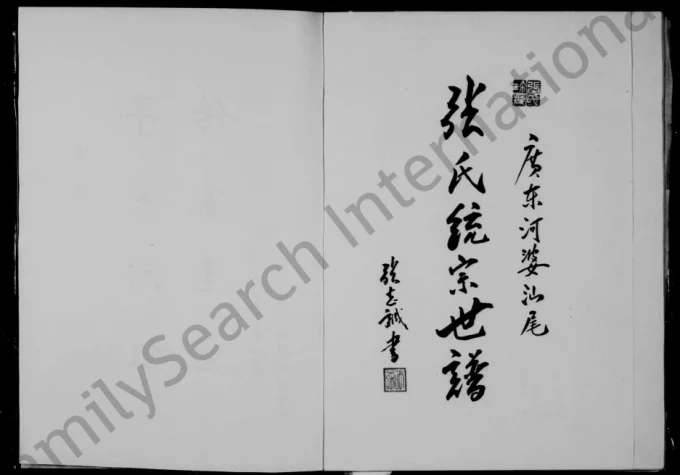 廣东河婆汕尾
张氏统宗世譜
张志誠书
FamilySearch International